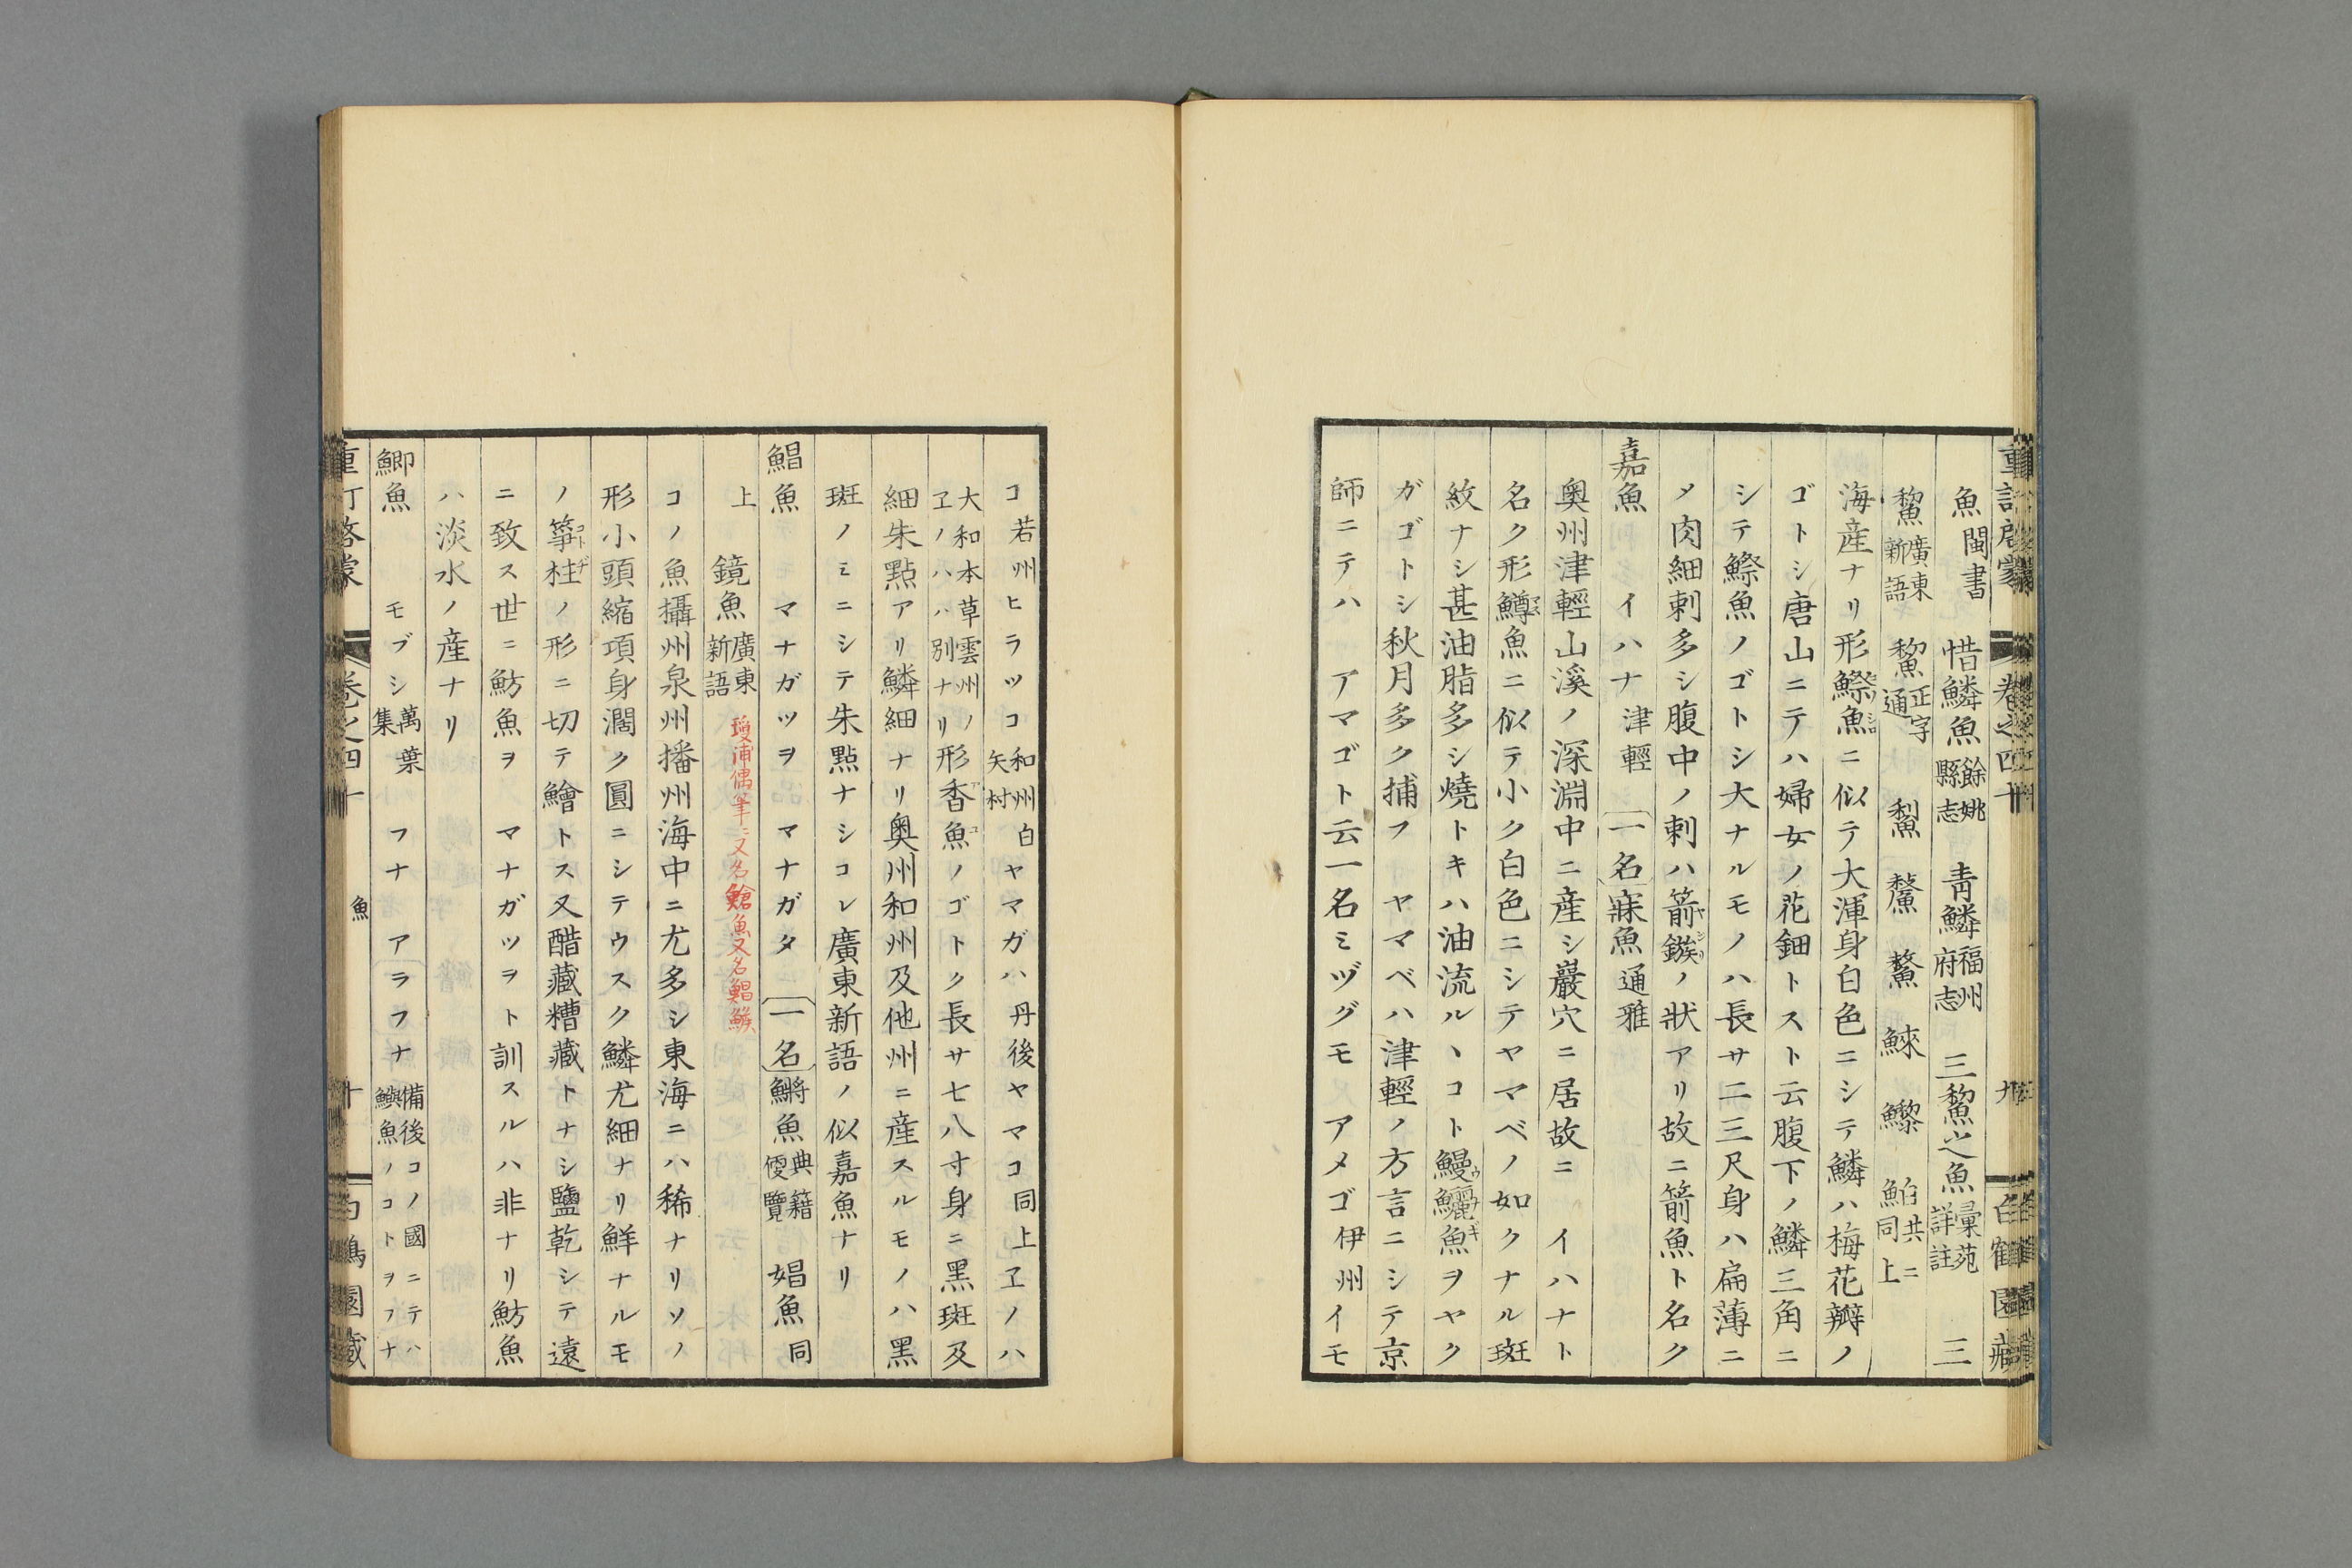 魚閩書 惜鱗魚餘姚縣志 靑鱗福州府志 三鯬之魚彙苑詳註 三
鯬廣東新語 鯬正字通 鯏 鯠 鱟 鮐共ニ同上
海産ナリ形鰶魚ニ似テ大渾身白色ニシテ鱗ハ梅花瓣ノ
ゴトシ唐山ニテハ婦女ノ花鈿トスト云腹下ノ鱗三角ニ
シテ鰶魚ノゴトシ大ナルモノハ長サ二三尺身ハ扁薄ニ
〆肉細刺多シ腹中ノ刺ハ箭鏃ノ狀アリ故ニ箭魚ト名ク
嘉魚 イハナ津輕 一名𩶤魚通雅
奥州津輕山溪ノ深淵中ニ産シ巖穴ニ居故ニ イハナト
名ク形鱒魚ニ似テ小ク白色ニシテヤマベノ如クナル斑
紋ナシ甚油脂多シ燒トキハ油流ルヽコト鰻鱺魚ヲヤク
ガゴトシ秋月多ク捕フ ヤマベハ津輕ノ方言ニシテ京
師ニテハ アマゴト云一名ミヅグモ アメゴ伊州イモ
コ若州ヒラツコ和州矢村白ヤマガハ丹後ヤマコ同上ヱノハ
大和本草雲州ノヱノハハ別ナリ形香魚ノゴトク長サ七八寸身ニ黑斑及
細朱點アリ鱗細ナリ奥州和州及他州ニ産スルモノハ黑
斑ノミニシテ朱點ナシコレ廣東新語ノ似嘉魚ナリ
鯧魚 マナガツヲ マナガタ 一名鱂魚典籍便覽 娼魚同
上 鏡魚廣東新語 瓊浦偶筆ニ又名鯧魚又名鯧鯸
コノ魚攝州泉州播州海中ニ尤多シ東海ニハ稀ナリソノ
形小頭縮項身濶ク圓ニシテウスク鱗尤細ナリ鮮ナルモ
ノ箏柱ノ形ニ切テ鱠トス又醋藏糟藏トナシ鹽乾シテ遠
ニ致ス世ニ魴魚ヲ マナガツヲト訓スルハ非ナリ魴魚
ハ淡水ノ産ナリ
鯽魚 モブシ萬葉集 フナ アラフナ備後コノ國ニテハ鱮魚ノコトヲフナ